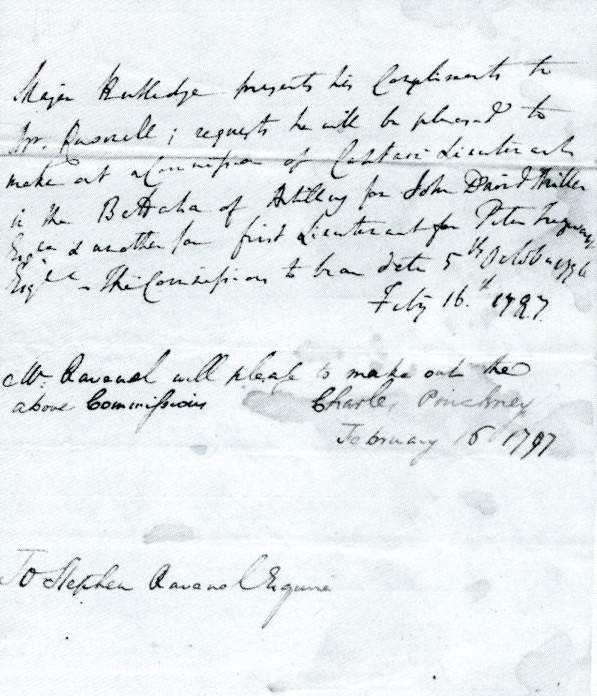 Major Rutledge presents his Compliments to
Mr. Ravenell; requests he will be pleased to
make out a Commission of Captain Lieutenant
in the Battalion of Artillery for John David Miller
Esqr. & another for first Lieutenant for Peter
Esqr. — The Commissions to bear date 5th October 1796
Feby 16th 1797.
Mr. Ravenel will please to make out the
above Commissions
Charles Pinckney
February 16 1797
To Stephen Ravenel Esquire